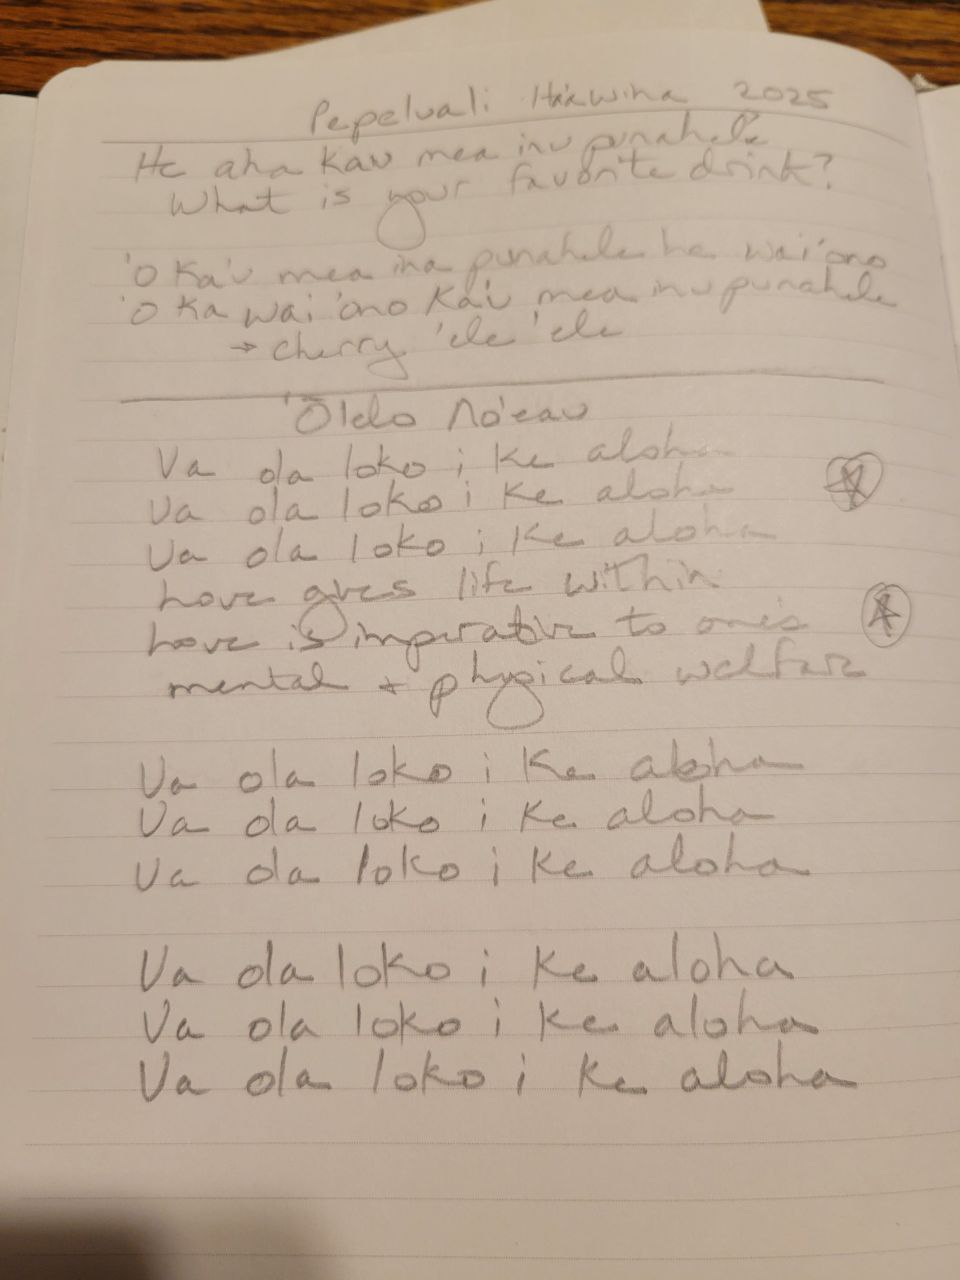 Pepeluali Ha'awina 2025
He aha kau mea inu punahele
What is your favorite drink?
'O Ka'u mea ina punahele ka wai'ono
'O Ka wai 'ono Ka'u mea inu punahele
→ cherry 'ele 'ele
'Ōlelo No'eau
Ua ola loko i ke aloha
Ua ola loko i ke aloha
Ua ola loko i ke aloha
Love gives life within
Love is imperative to one's
mental + physical welfare
Ua ola loko i ke aloha
Ua ola loko i ke aloha
Ua ola loko i ke aloha
Ua ola loko i ke aloha
Ua ola loko i ke aloha
Ua ola loko i ke aloha